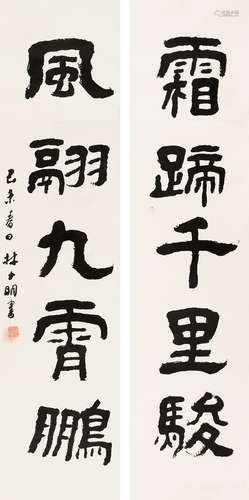 霜蹄千里駿
風翮九霄鵬
己未春日林少明書